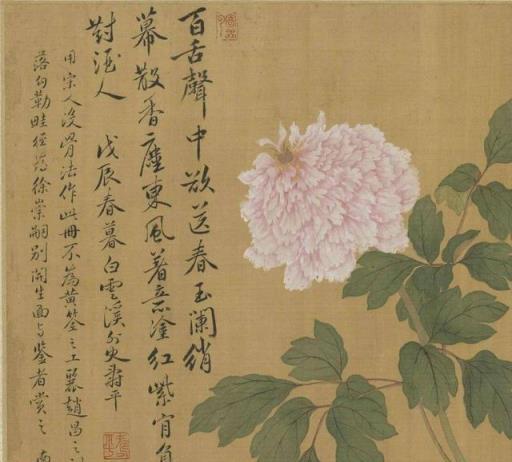 百舌聲中欲送春玉闌綃
幕散香塵東風著意塗紅紫肯負
對酒人 戊辰春暮白雲溪外史壽平
用宋人沒骨法作此冊不為黃筌之工麗趙昌之
落向勒畦徑為徐崇嗣別開生面與鑒者賞之 南